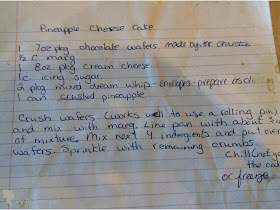 Pineapple Cheese Cake
1 7oz pkg chocolate wafers made by Mr. Christie
½ c marg.
1 8oz pkg cream cheese.
1c. icing sugar.
2 pkg mixed dream whip - envelopes - prepare as dir
1 can crushed pineapple.
Crush wafers (works well to use a rolling pin)
and mix with marg. Line pan with about 3/4
of mixture. Mix next 4 indregients and put over
wafers. Sprinkle with remaining crumbs
Chill (not
the cak
or freeze